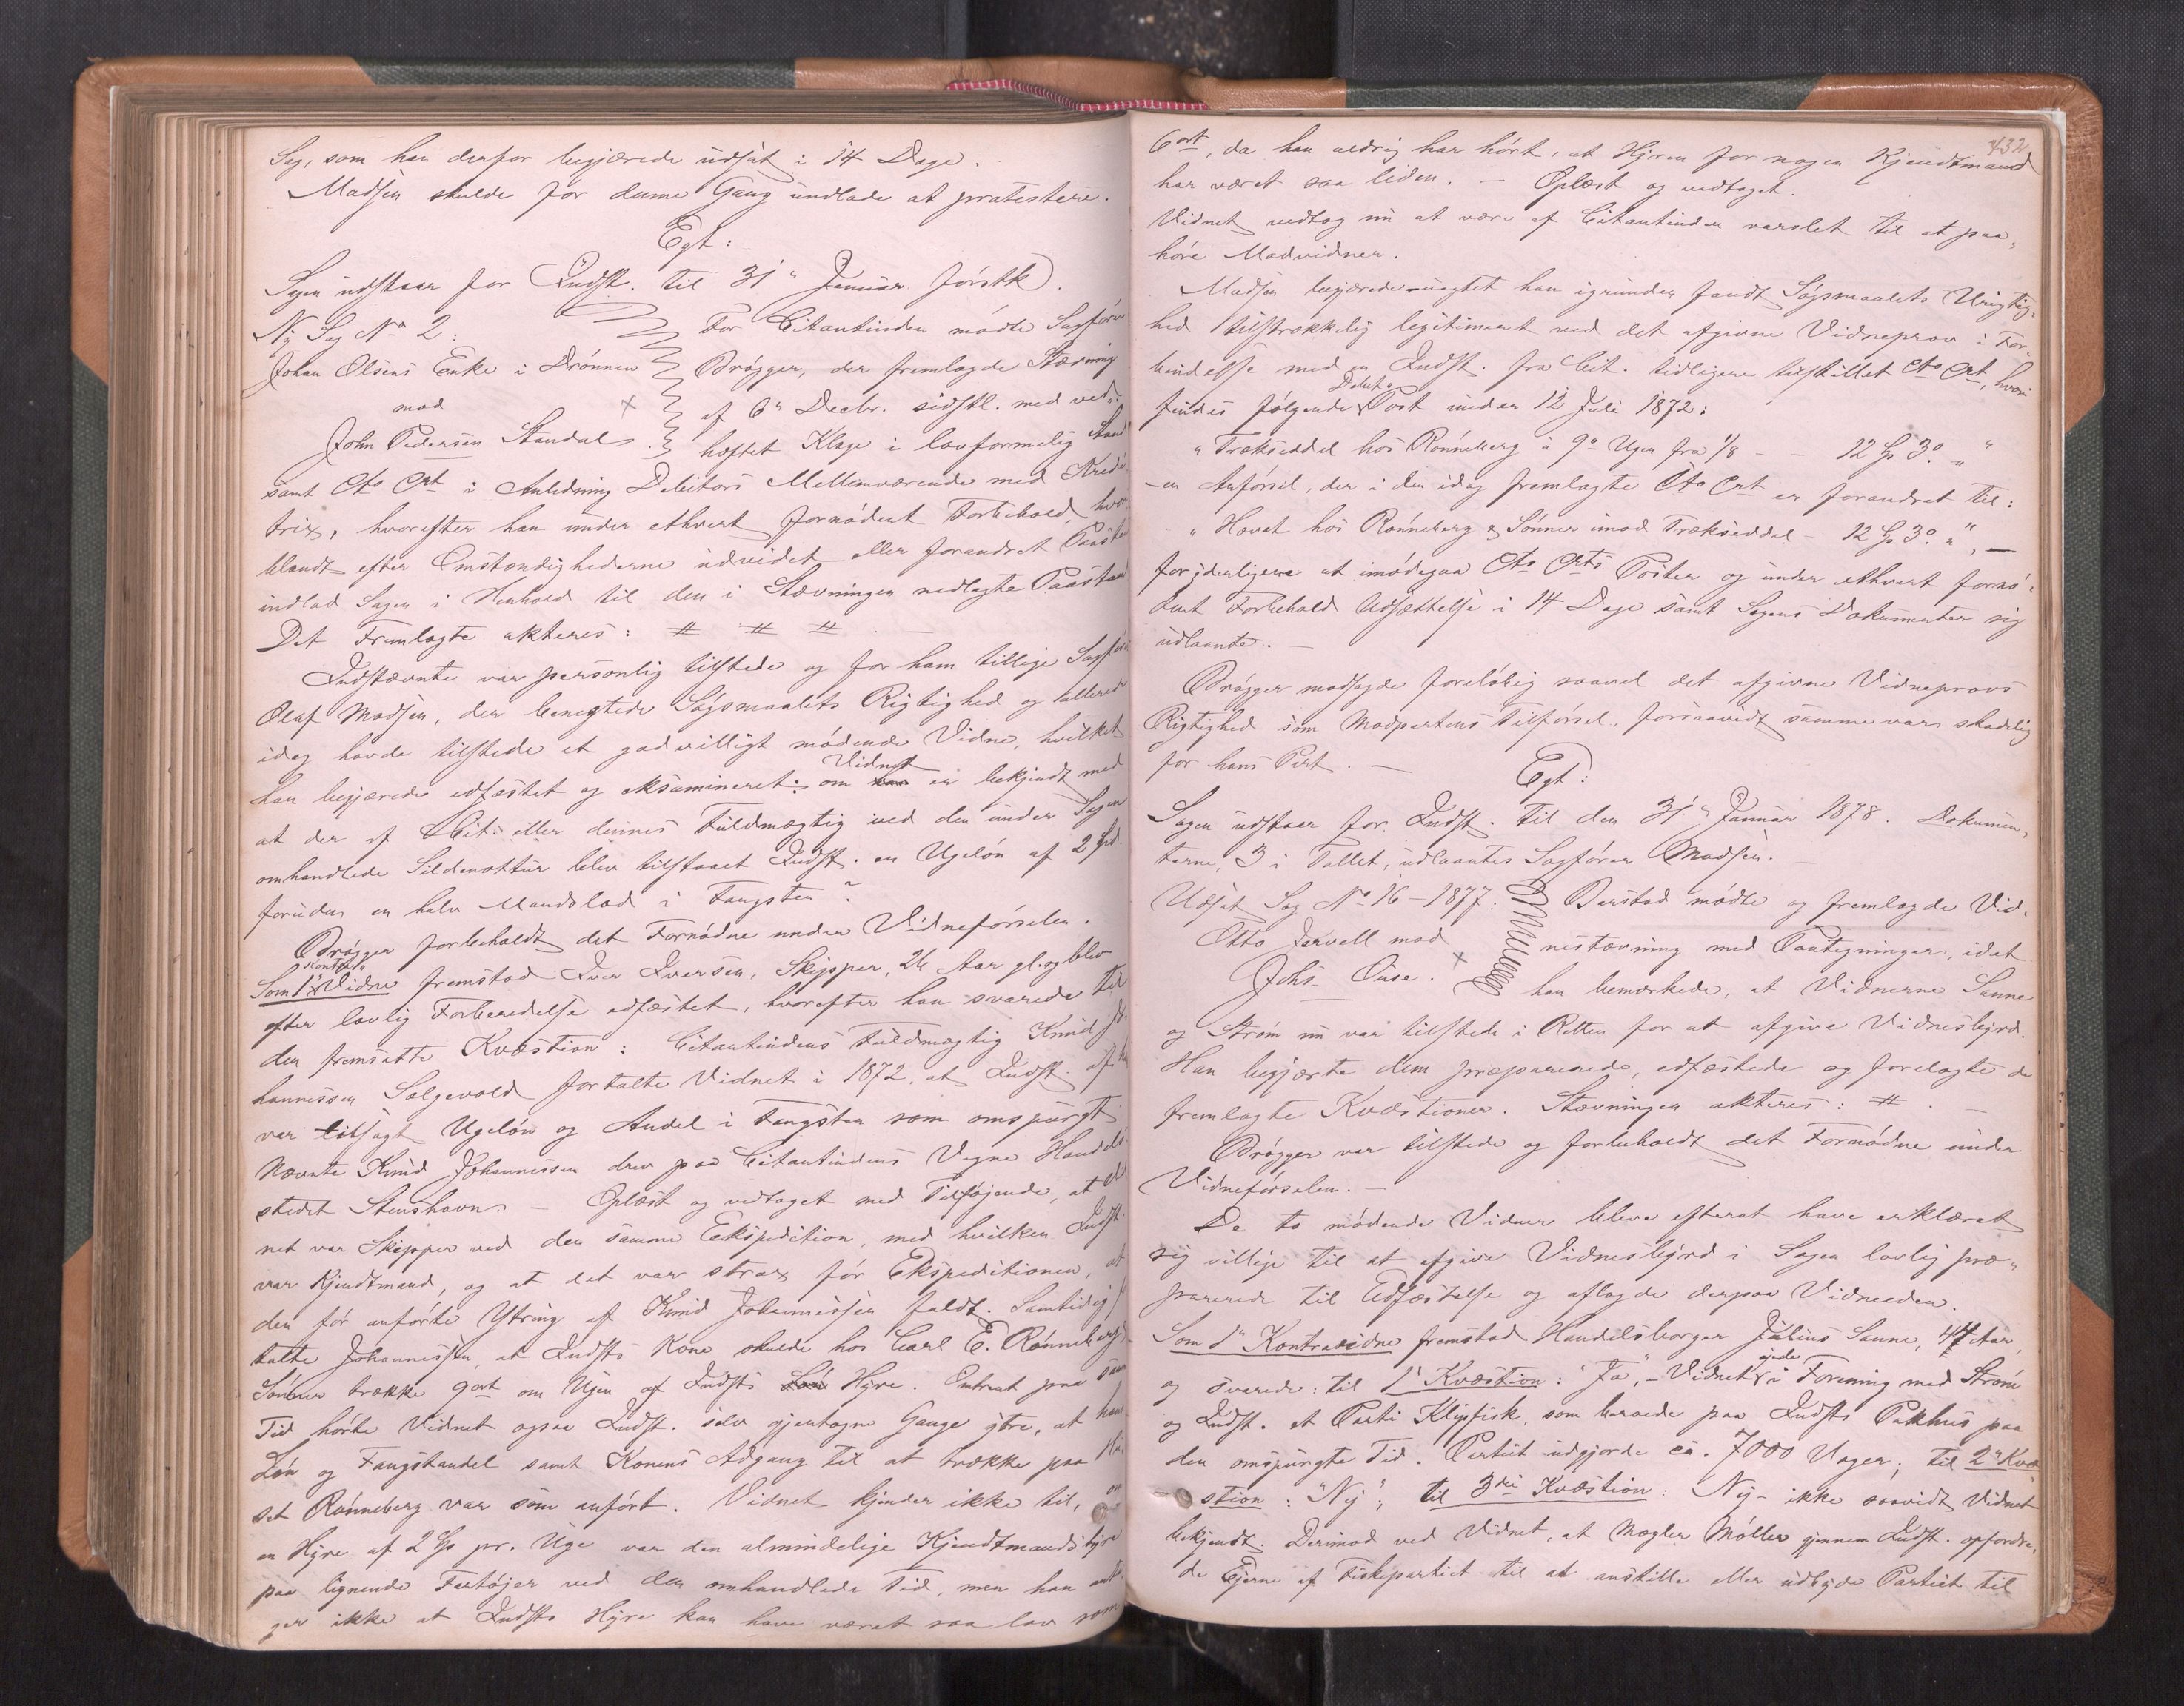 Sag, som han derfor begjærede udsat i 14 Dage.
Madsen skulde for denne Gang undlade at protestere.
Egt:
Sagen udstaar for Indst. til 31te Januar førstk.
Ny Sag No 2:
Johan Olsens Enke i Drønnen
mod
John Pedersen Standal
For Citantinden mødte Sagfører
Brøgger, der fremlagde Stævning
af 6te Decbr. sidstl. med ved-
heftet Klage i lovformelig Stand
samt Cto Crt i Anledning Debitors Mellemværende med Kredi-
trix, hvorefter han under ethvert fornødent Forbehold, hvor-
blandt efter Omstændighederne udvidet eller forandret Paastand
indlod Sagen i Henhold til den i Stævningen nedlagte Paastand
Det Fremlagte akteres: # # #.
Indstævnte var personlig tilstede og for ham tillige Sagfører
Olaf Madsen, der benegtede Søgsmaalets Rigtighed og allerede
idag havde tilstede et godvilligt mødende Vidne, hvilket
han begjærede edfæstet og eksamineret: om Vidnet er bekjendt med
at der af Cit. eller dennes Fuldmægtig ved den under Sagen
omhandlede Sildenottur blev tilstaaet Indst. en Ugeløn af 2 Spd.
foruden en halv Mandslod i Fangsten?
Brøgger forbeholdt det Fornødne under Vidneførselen.
Som 1te Kontra Vidne fremstod Iver Iversen, Skipper, 26 Aar gl. og blev
efter lovlig Forberedelse edfæstet, hvorefter han svarede til
den fremsatte Kvæstion: Citantindens Fuldmægtig Knud Jo-
hannessen Salgevold fortalte Vidnet i 1872, at Indst. af
var tilsagt Ugeløn og Andel i Fangsten som omspurgt
Nævnte Knud Johannessen drev paa Citantindens Vegne Handels-
stedet Stenshavn. – Oplæst og vedtaget med Tilføiende, at Vid-
net var Skipper ved den samme Ekspedition, med hvilken Indst.
var Kjendtmand, og at det var strax før Ekspeditionen, at
den før anførte Ytring af Knud Johannessen faldt. Samtidig for-
talte Johannessen, at Indsts Kone skulde hos Carl E. Rønneberg &
Sønner trække 9 ort om Ugen af Indsts Hyre. Omtrent paa samme
Tid hørte Vidnet ogsaa Indst. selv gjentagne Gange ytre, at hans
Løn og Fangstandel samt Konens Adgang til at trække paa Hu-
set Rønneberg var som anført. Vidnet kjender ikke til, om
en Hyre af 2 Sp pr. Uge var den almindelige Kjendtmandshyre
paa lignende Fartøjer ved den omhandlede Tid, men han anta-
ger ikke at Indsts Hyre kan have været saa lav som
432
6 ort, da han aldrig har hørt, at Hyren for nogen Kjendtmand
har været saa liden. – Oplæst og vedtaget.
Vidnet vedtog nu at være af Citantinden varslet til at paa-
høre Modvidner.
Madsen begjærede – uagtet han igrunden fandt Søgsmaalets Urigtig-
hed tilstrækkelig legitimeret ved det afgivne Vidneprov i For-
bindelse med en Indst. fra Cit. tidligere tilstillet Cto Crt, hvori
findes følgende Debet Post under 12 Juli 1872:
"Trækseddel hos Rønneberg a 9o Ugen fra 1/8 – – 12 Sp 3o "
– en Anførsel, der i den idag fremlagte Cto Crt er forandret til:
"Hævet hos Rønneberg & Sønner imod Trækseddel – 12 Sp 3o ", –
for yderligere at imødegaa Cto Crts Poster og under ethvert fornø-
dent Forbehold Udsættelse i 14 Dage samt Sagens Dokumenter sig
udlaante. –
Brøgger modsagde foreløbig saavel det afgivne Vidneprovs
Rigtighed som Modpartens Tilførsel, forsaavidt samme var skadelig
for hans Part. –
Egt:
Sagen udstaar for Indst. til den 31te Januar 1878. Dokumen-
terne, 3 i Tallet, udlaantes Sagfører Madsen.
Udsat Sag No 16 – 1877:
Otto Jervell mod
Johs. Ouse.
Berstad mødte og fremlagde Vid-
nestævning med Paategninger, idet
han bemærkede, at Vidnerne Sanne
og Strøm nu var tilstede i Retten for at afgive Vidnesbyrd.
Han begjærte dem præparerede, edfæstede og forelagte de
fremlagte Kvæstioner. Stævningen akteres: #. –
Brøgger var tilstede og forbeholdt det Fornødne under
Vidneførselen. –
De to mødende Vidner bleve efterat have erklæret
sig villige til at afgive Vidnesbyrd i Sagen lovlig præ-
parerede til Edfæstelse og aflagde derpaa Vidneeden.
Som 1te Kontravidne fremstod Handelsborger Julius Sanne, 44 Aar,
og svarede: til 1te Kvæstion: "Ja", – Vidnet ejede i Forening med Strøm
og Indst. et Parti Klipfisk, som beroede paa Indsts Pakhus paa
den omspurgte Tid. Partiet udgjorde ca. 7000 Voger; til 2den Kvæ-
stion: "Nej"; til 3die Kvæstion: Nej – ikke saavidt Vidnet
bekjendt. Derimod ved Vidnet, at Mægler Møller gjennem Indst. opfordre-
de Ejerne af Fiskepartiet til at anstille eller udbyde Partiet til